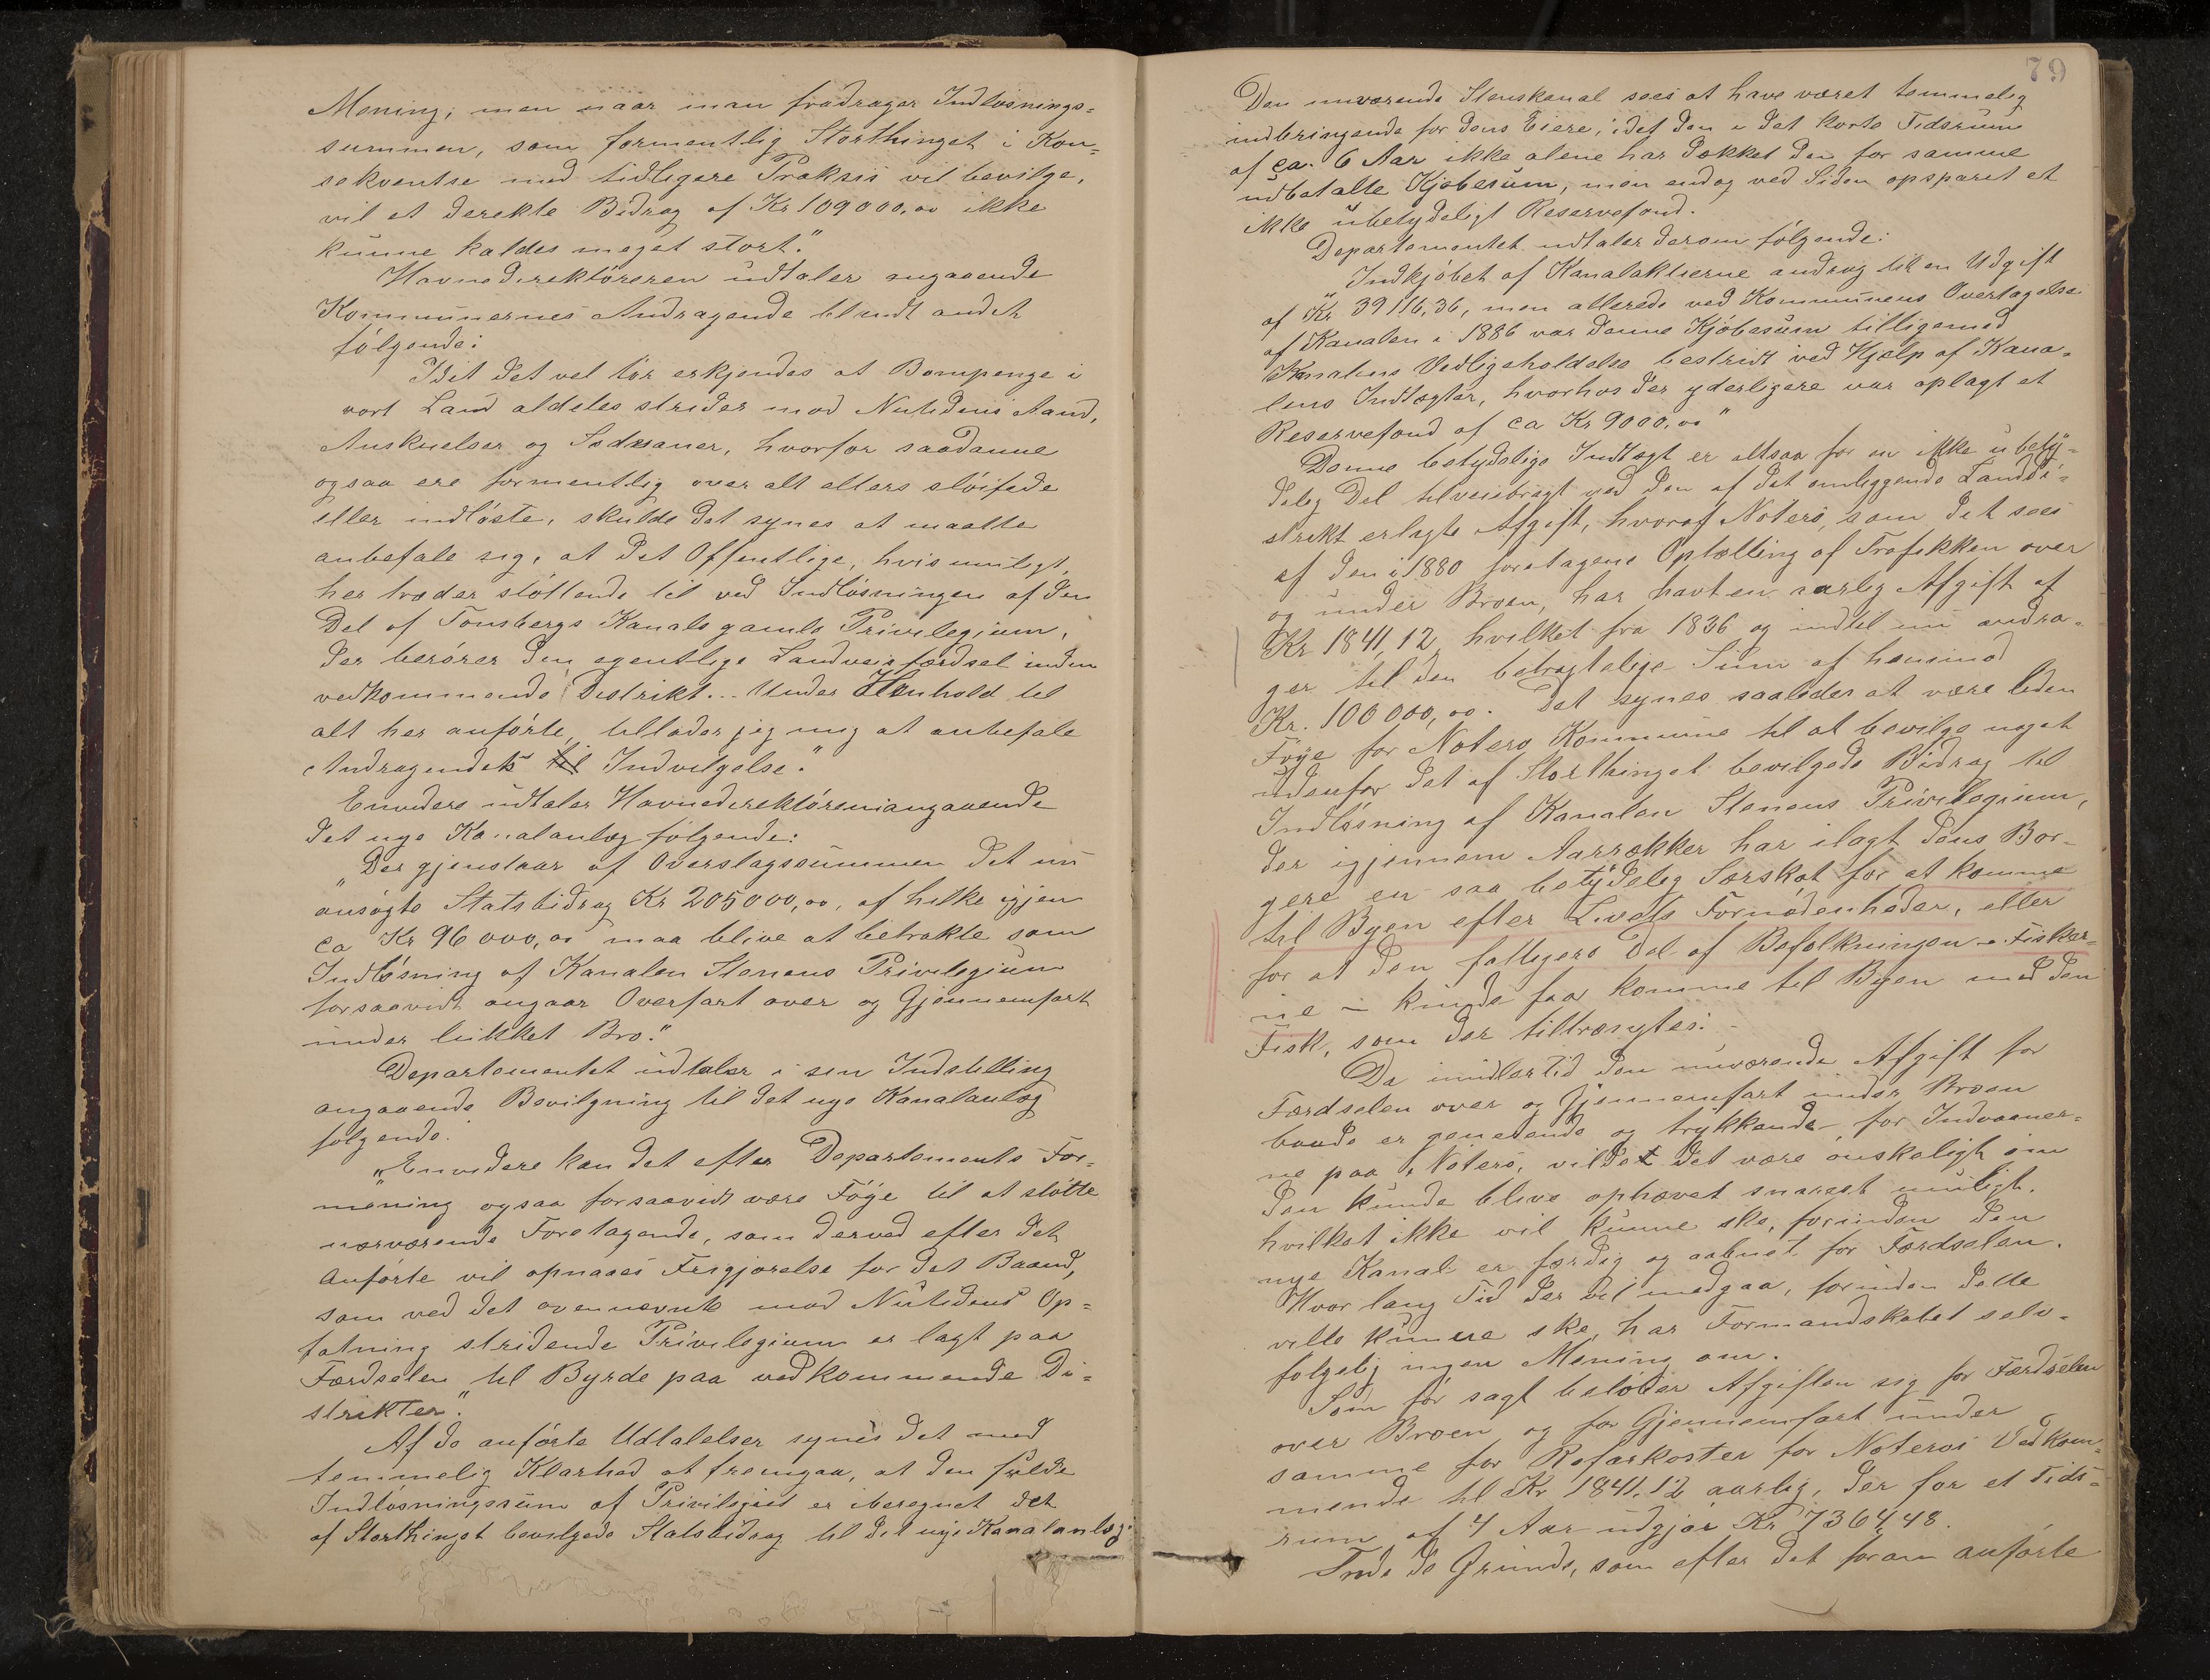 Mening; men naar man fradrager Indløsnings=
summen, som formentlig Storthinget i Kon=
sekventse med tidligere Praksis vil bevilge,
vil et direkte Bidrag af Kr 109000,00 ikke
kunne kaldes meget stort."
Havnedirektören udtaler angaaende
Kommunernes Andragende blandt andet
følgende:
Idet det vel tör erkjendes at Bompenge i
vort Land aldeles strider mod Nutidens Aand,
Anskuelser og Sædvaner, hvorfor saadanne
ogsaa ere formentlig over alt ellers slöifede
eller indlöste, skulde det synes at maatte
anbefale sig, at det Offentlige, hvis muligt,
her træder stöttende til ved Indlösningen af den
Del af Tönsbergs Kanals gamle Privilegium,
der berörer den egentlige Landveisfærdsel inden
vedkommende Distrikt. Under Henhold til
alt her anförte, tillader jeg mig at anbefale
Andragendets til Indvilgelse."
Envidere udtaler Havnedirektören angaaende
det nye Kanalanlæg følgende:
"Der gjenstaar af Overslagssummen det nu
ansögte Statsbidrag Kr 205000,00, af hvilke igjen
ca Kr 96000,00 maa blive at betrakte som
Indlösning af Kanalen Stenens Privilegium
forsaavidt angaar Overfart over og Gjennemfart
under lukket Bro."
Departementet udtaler i sen Indstilling
angaaende Bevilgning til det nye Kanalanlæg
følgende:
"Envidere kan det efter Departements For=
mening ogsaa forsaavidt være Föje til at stötte
nærværende Foretagende, som derved efter det
Anförte vil opnaaes Frigjörelse for det Baand,
som ved det ovennævnte mod Nutidens Op=
fatning stridende Privilegium er lagt paa
Færdselen til Byrde paa vedkommende Di=
strikter."
Af de anförte Udtalelser synes det med
temmelig Klarhed at fremgaa, at den fulde
Indlösningssum af Privilegiet er iberegnet det
af Storthinget bevilgede Statsbidrag til det nye Kanalanlæg.
79
Den nuværende Stenskanal sees at have været temmelig
indbringende for dens Eiere, idet den i det korte Tidsrum
af ca. 6 Aar ikke alene har dækket den for samme
udbetalte Kjöbesum, men endog ved Siden opsparet et
ikke übetydeligt Reservefond.
Departementet udtaler derom følgende:
"Indkjöbet af Kanalaktierne androg til en Udgift
af Kr 39116,36, men allerede ved Kommunens Overtagelse
af Kanalen i 1886 var denne Kjöbesum tilligemed
Kanalens Vedligeholdelse bestridt ved Hjælp af Kana=
lens Indtægter, hvorhos der yderligere var oplagt et
Reservefond af ca Kr 9000,00"
Denne betydelige Indtægt er altsaa for en ikke ubety=
delig Del tilveiebragt ved den af det omliggende Landdi=
strikt erlagte Afgift, hvoraf Nöterö, som det sees
af den i 1880 foretagene Optælling af Trafikken over
og under Broen, har havt en aarlig Afgift af
Kr 1841,12, hvilket fra 1836 og indtil nu andra=
ger til den betragtelige Sum af henimod
Kr. 100000,00. Det synes saaledes at være liden
Föye for Nöterö Kommune til at bevilge noget
udenfor det af Storthinget bevilgede Bidrag til
Indlösning af Kanalen Stenens Privilegium,
der igjennem Aarrækker har ilagt dens Bor=
gere en saa betydelig Særskat for at komme
til Byen efter Livets Fornödenheder, eller
for at den fattigere Del af Befolkningen - Fisker=
ne - kunde faa komme til Byen med den
Fisk, som der tiltrængtes.
Da imidlertid den nuværende Afgift for
Færdselen over og Gjennemfart under Broen
baade er generende og trykkende for Indvaaner=
ne paa Nöterö, vilde det være önskeligt om
den kunde blive ophævet snarest muligt,
hvilket ikke vil kunne ske, forinden den
nye Kanal er færdig og aabnet for Færdselen.
Hvor lang Tid der vil medgaa, forinden dette
ville kunne ske, har Formandskabet selv=
følgelig ingen Mening om.
Som för sagt belöber Afgiften sig for Færdselen
over Broen og for Gjennemfart under
samme for Rofarkoster for Nöterös Vedkom=
mende til Kr. 1841.12 aarlig, der for et Tids=
rum af 4 Aar udgjör Kr 7364,48.
Trods de Grunde, som efter det foran anförte